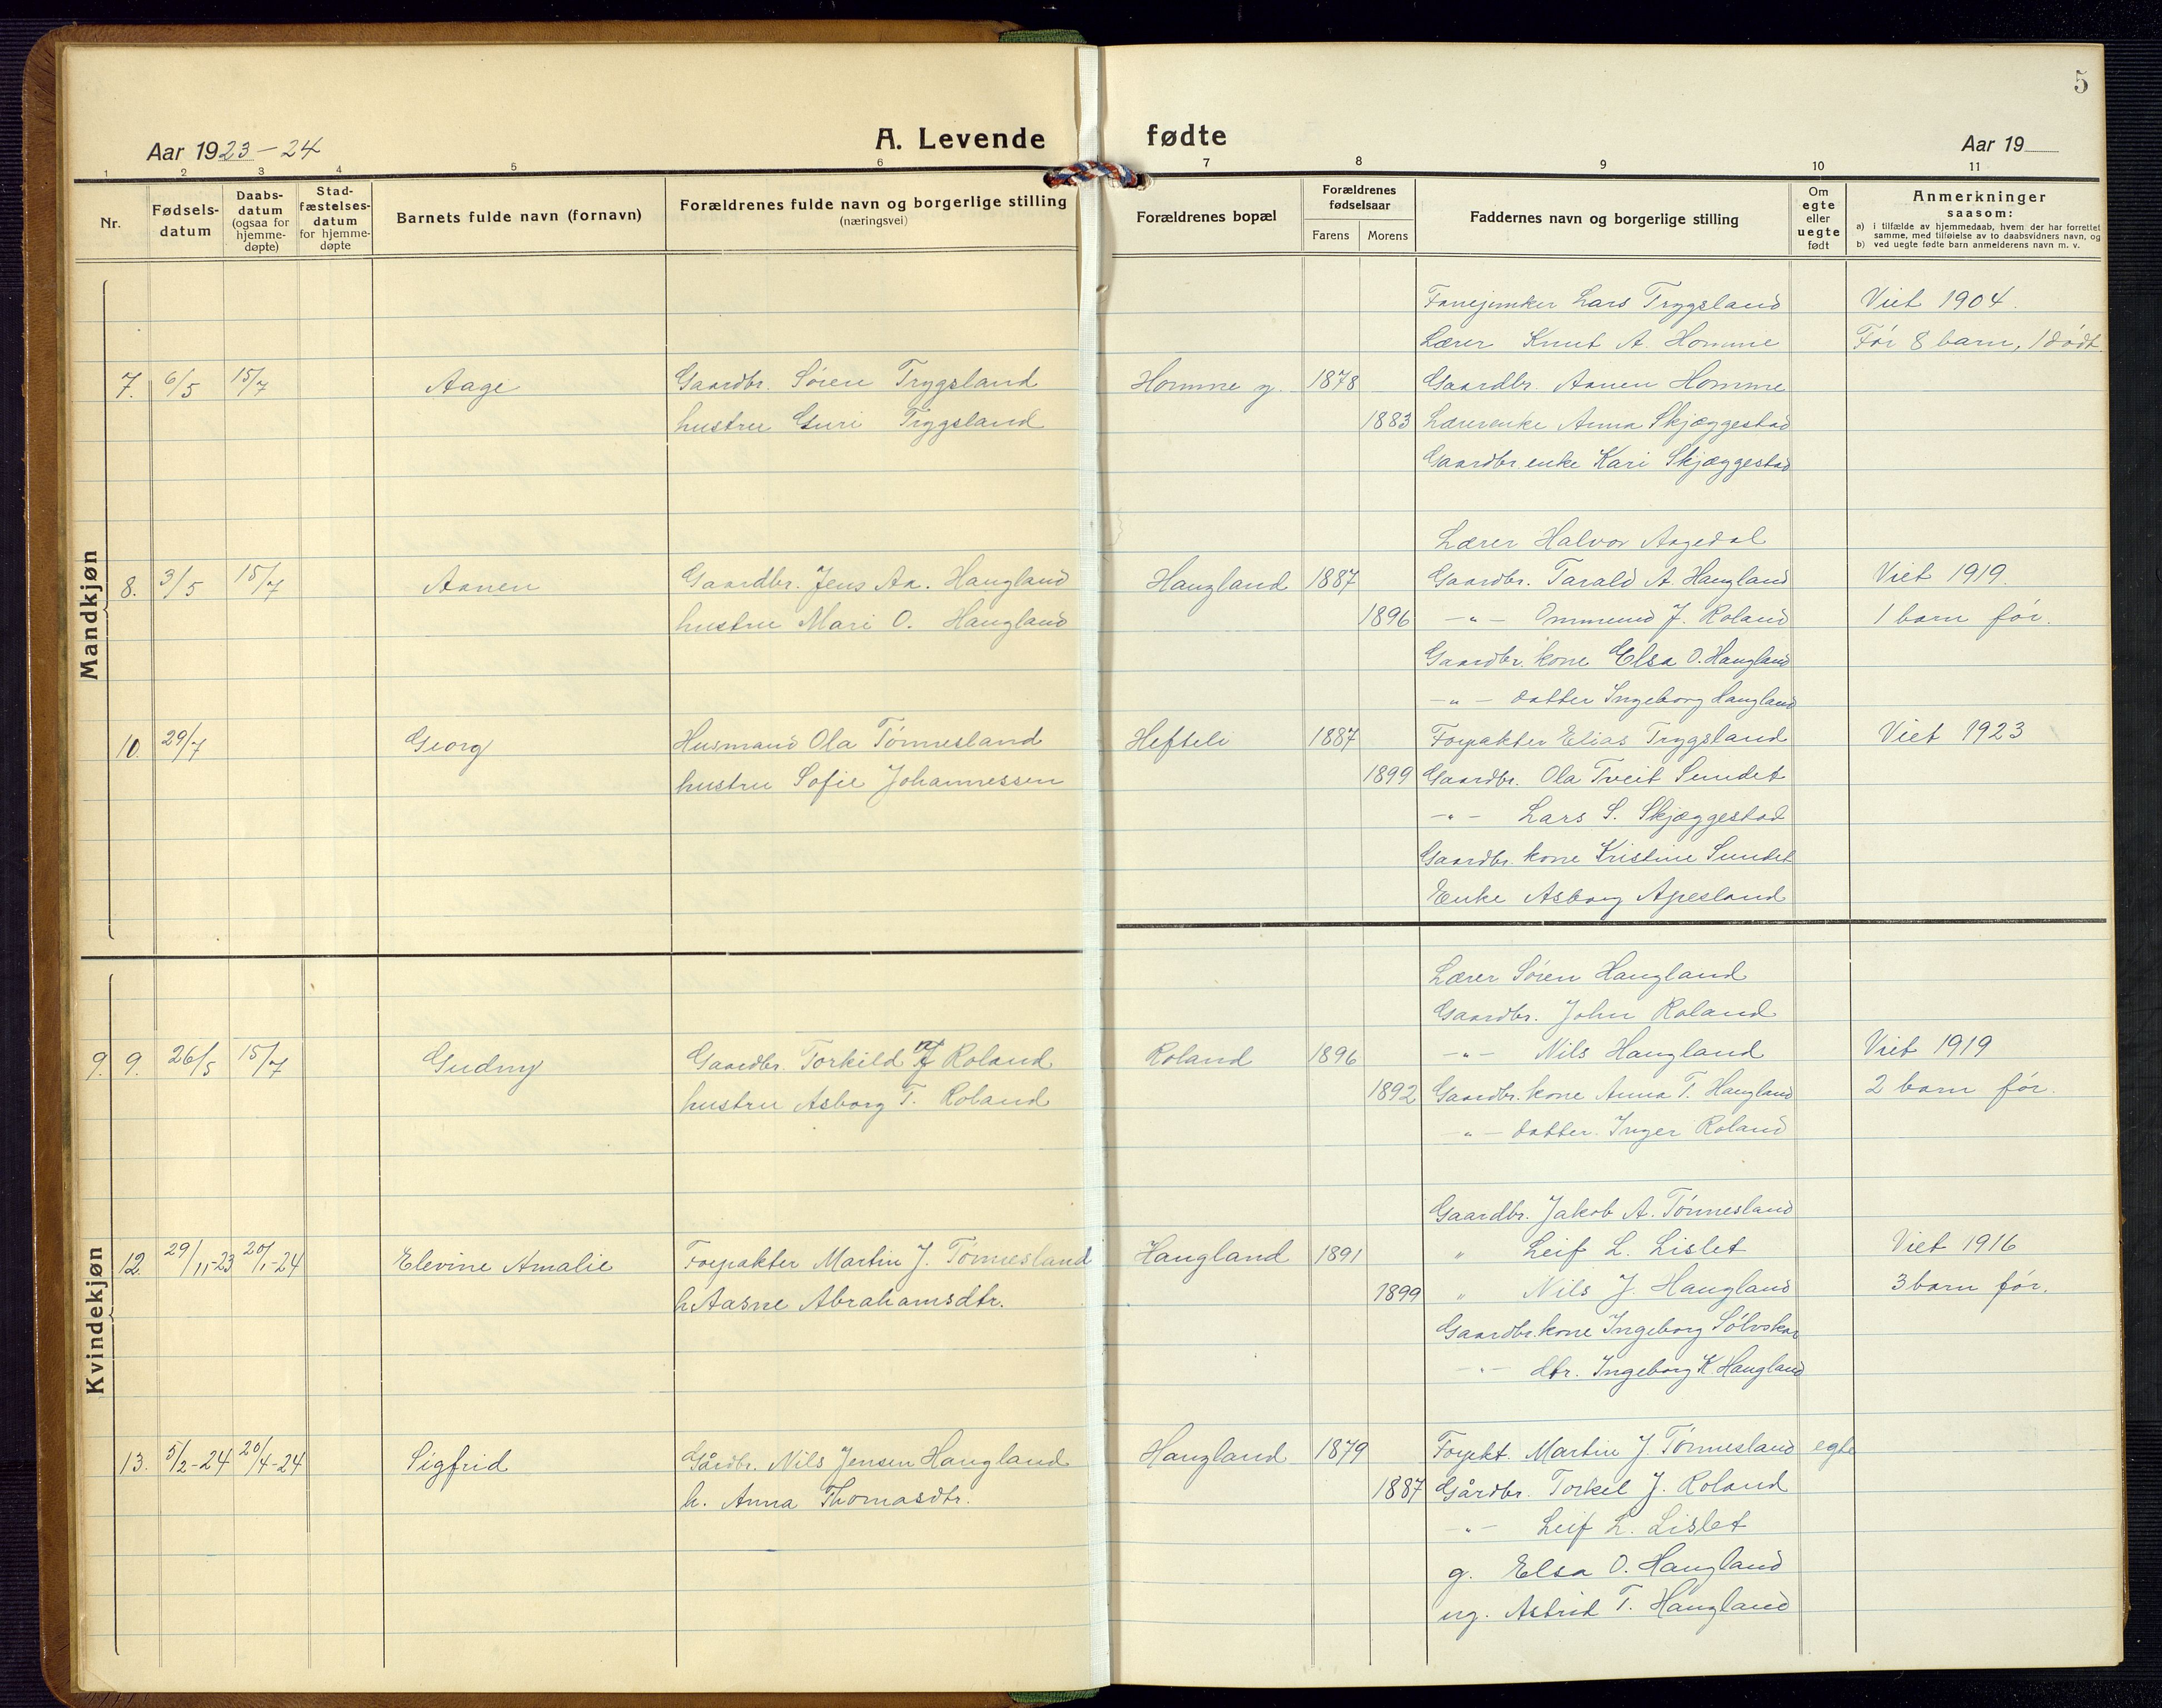 5
Aar 1923-24
A. Levende fødte
Aar 19
1 2 3 4 5 6 7 8 9 10 11
Nr.
Fødsels-datum
Daabs-datum (ogsaa for hjemme-døpte)
Stad-fæstelses-datum for hjemme-døpte
Barnets fulde navn (fornavn)
Forældrenes fulde navn og borgerlige stilling (næringsvei)
Forældrenes bopæl
Forældrenes fødselsaar
Farens Morens
Faddernes navn og borgerlige stilling
Om egte eller uegte født
Anmerkninger saasom:
a) i tilfælde av hjemmedaab, hvem der har forrettet samme, med tilføielse av to daabsvidners navn, og
b) ved uegte fødte barn anmelderens navn m. v.
Mandkjøn
Fanejunker Lars Trygsland Viet 1904.
Lærer Knut A. Homme Før 8 barn, 1 dødt
7. 6/5 15/7 Aage Gaardbr. Søren Trygsland Homme y. 1878 Gaardbr. Aanen Homme
hustru Guri Trygsland 1883 Lærerenke Anna Skjæggestad
Gaardbr. enke Kari Skjæggestad
Lærer Halvor Aagedal
8. 3/5 15/7 Aanen Gaardbr. Jens Aa. Haugland Haugland 1887 Gaardbr. Tarald A. Haugland Viet 1919.
hustru Mari O. Haugland 1896 -"- Ommund J. Roland 1 barn før.
Gaardbr. kone Elsa O. Haugland
-"- datter Ingeborg Haugland
10. 29/7 Georg Husmand Ola Tønnesland Hefteli 1887 Forpakter Elias Trygsland Viet 1923
hustru Sofie Johannessen 1899 Gaardbr. Ola Tveit Sundet
-"- Lars S. Skjæggestad
Gaardbr. kone Kristine Sundet
Enke Asborg Apesland
Kvindekjøn
Lærer Søren Haugland
Gaardbr. John Roland
9. 9. 26/5 15/7 Gudny Gaardbr. Torkild J Roland Roland 1896 -"- Nils Haugland Viet 1919
hustru Asborg T. Roland 1892 Gaardbr. kone Anna T. Haugland 2 barn før.
-"- datter Inger Roland
Gaardbr. Jakob A. Tønnesland
12. 29/11-23 20/1-24 Elevine Amalie Forpakter Martin J. Tønnesland Haugland 1891 " Leif L. Lislet Viet 1916
h. Aasne Abrahamsdtr. 1899 " Nils J. Haugland 3 barn før.
Gaardbr. kone Ingeborg Sølvskar
-"- dtr. Ingeborg K Haugland
13. 5/2-24 20/4-24 Sigfrid Gårdbr. Nils Jensen Haugland Haugland 1879 Forpkt. Martin J. Tønnesland egte
h. Anna Thomasdtr. 1887 Gårdbr. Torkel J. Roland
-"- Leif L. Lislet
g. Elsa O. Haugland
ug. Astrid T. Haugland